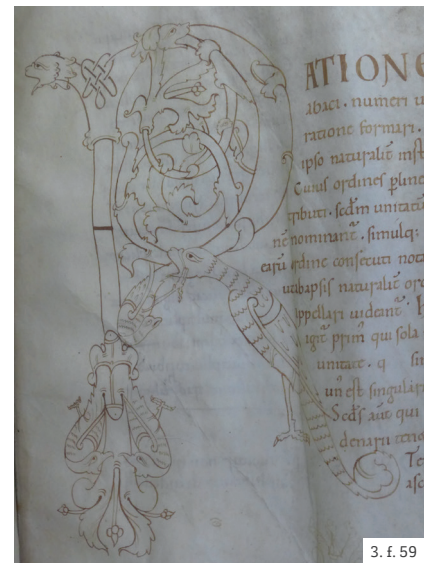 ATIONE
abaci. numeri u
ratione formari.
ipso naturalit̄ inst
Cuius ordines p̱lineā
tributi. sed̄m unitatū
nē nominant̄. simulq:
earū ordine consecuti nota
utibapsis naturalit̄ ord
appellari uidant̄.
igit̄ prim̄ qui sola
unitate. q sin
un̄ est singularis
Sed̄s aūt qui
denarii tene
Te
asc
3. f. 59